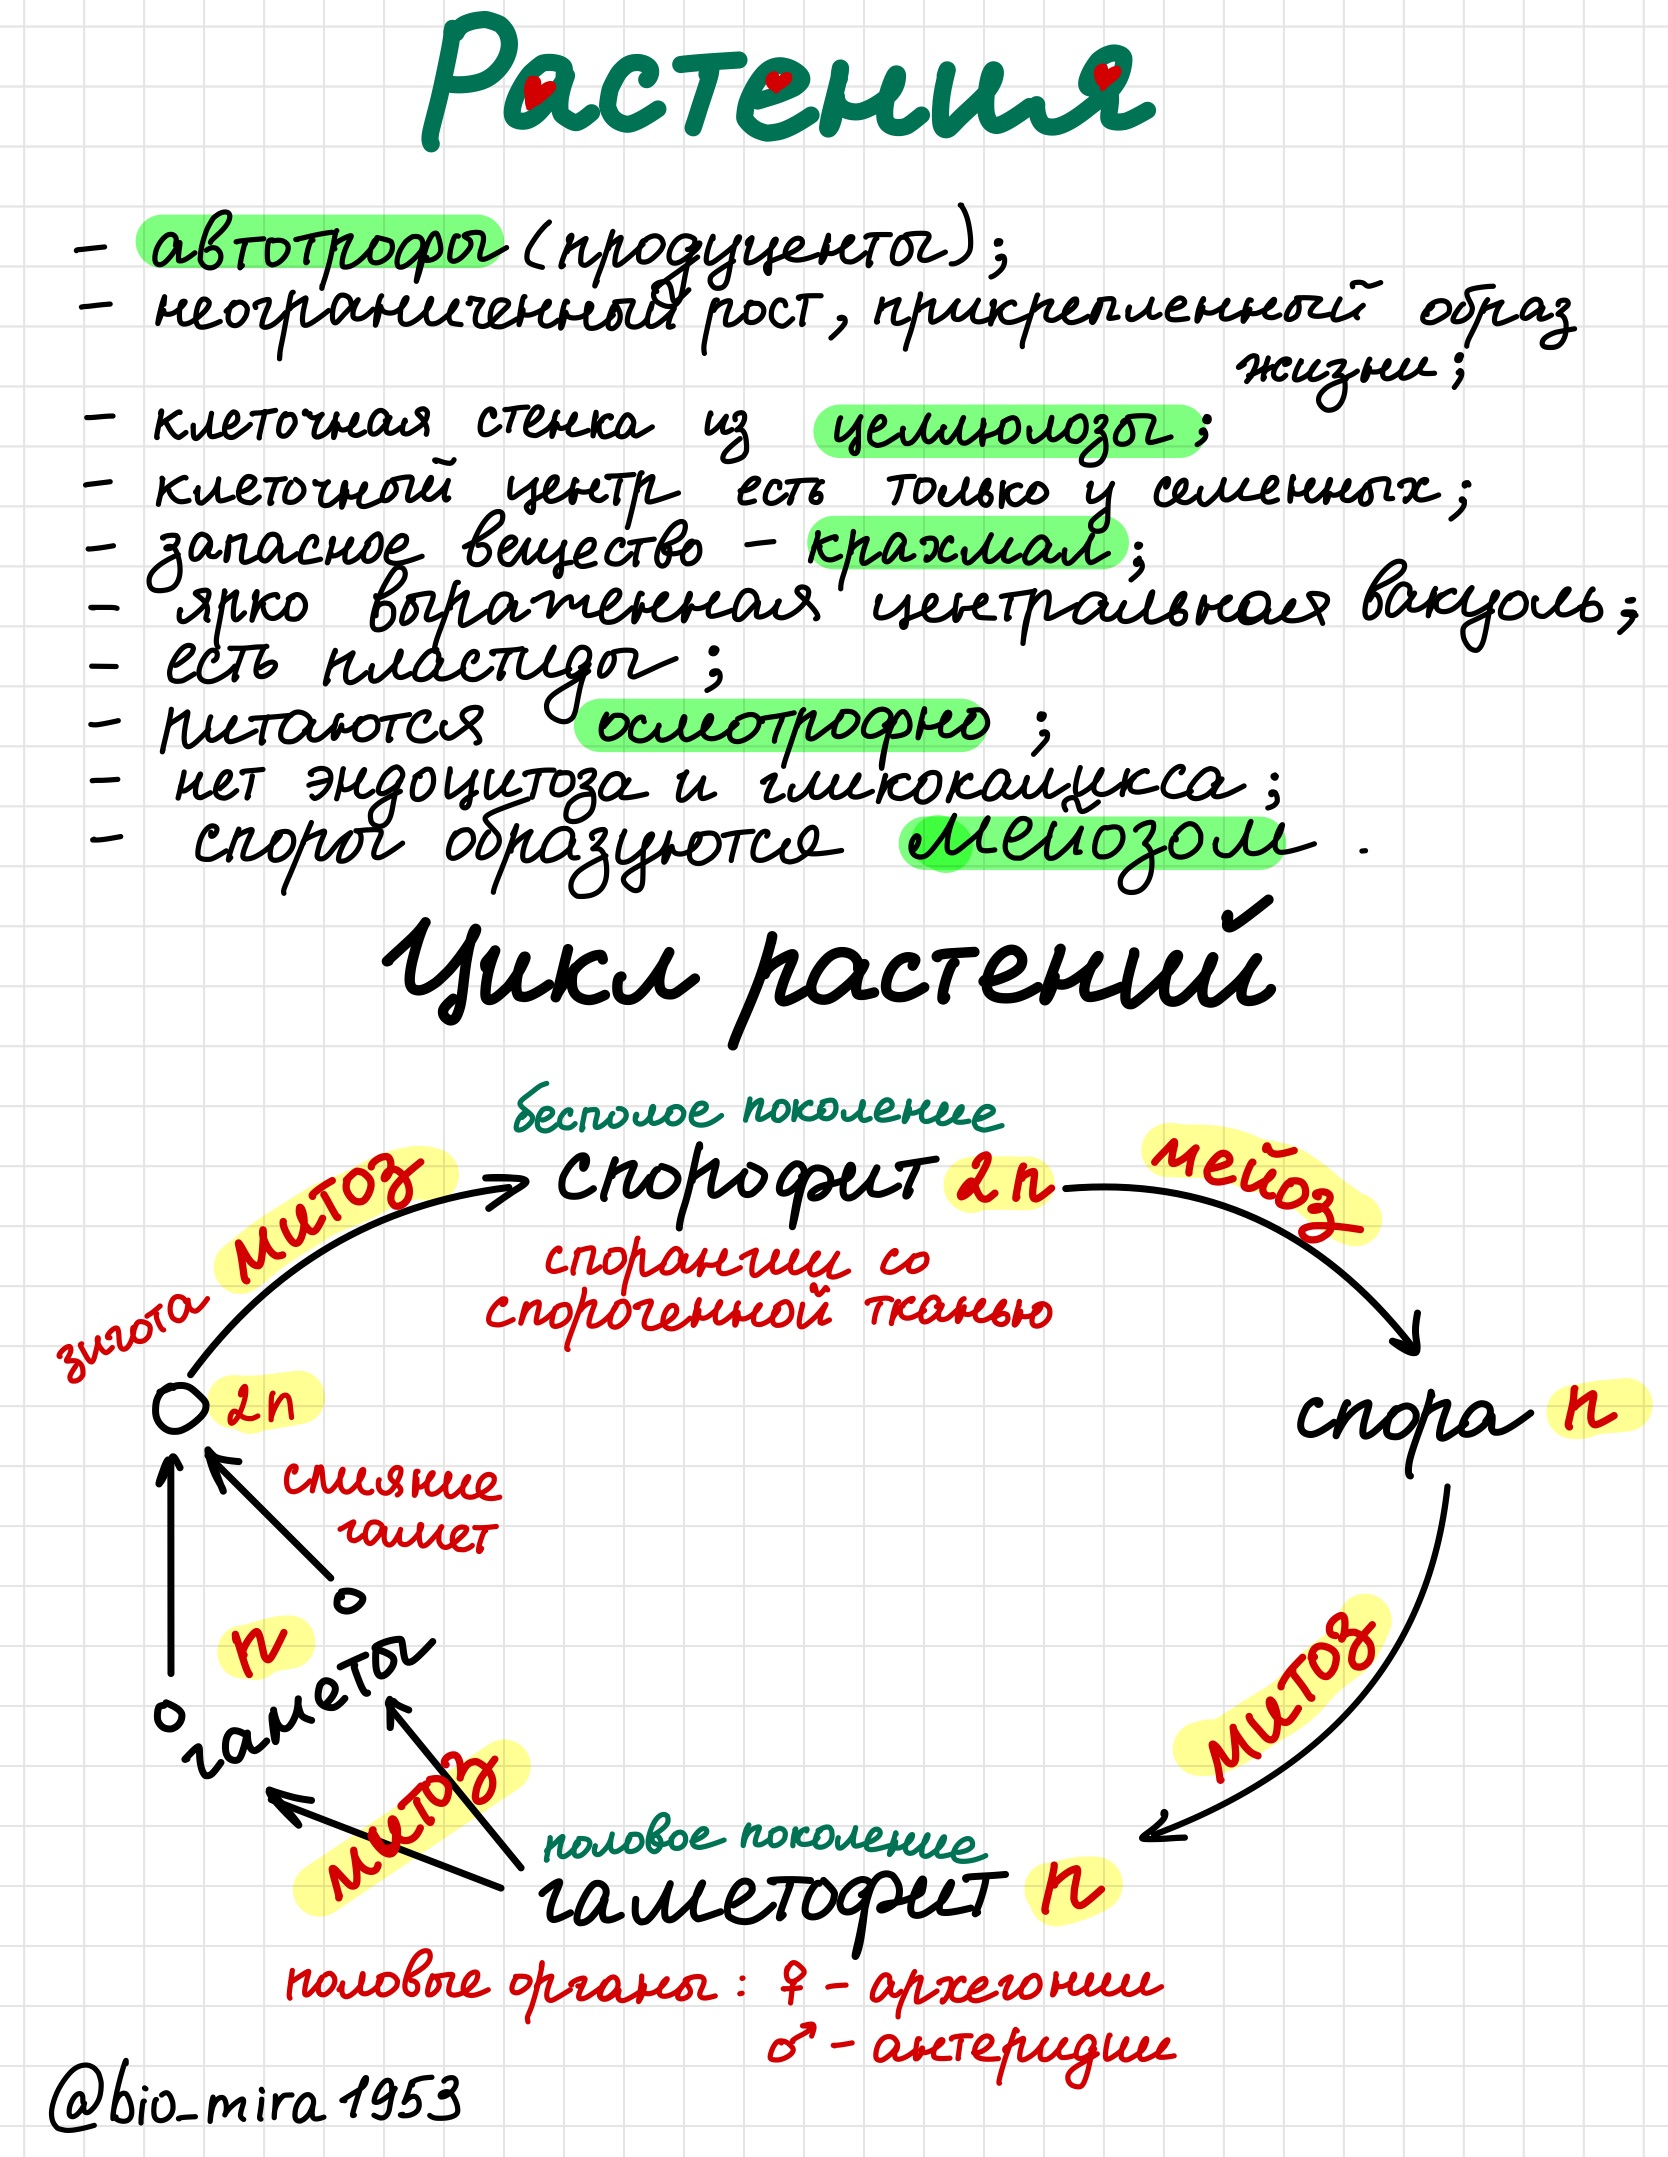 Растения
- автотрофы (продуценты);
- неограниченный рост, прикрепленный образ
жизни;
- клеточная стенка из целлюлозы;
- клеточный центр есть только у семенных;
- запасное вещество - крахмал;
- ярко выраженная центральная вакуоль;
- есть пластиды;
- питаются осмотрофно;
- нет эндоцитоза и гликокаликса;
- споры образуются мейозом.
Цикл растений
бесполое поколение
митоз
спорофит 2n
мейоз
спорангии со
спорогенной тканью
зигота
2n
спора n
слияние
гамет
n
гаметы
митоз
митоз
половое поколение
гаметофит n
половые органы: ♀ - архегонии
♂ - антеридии
@bio_mira1953